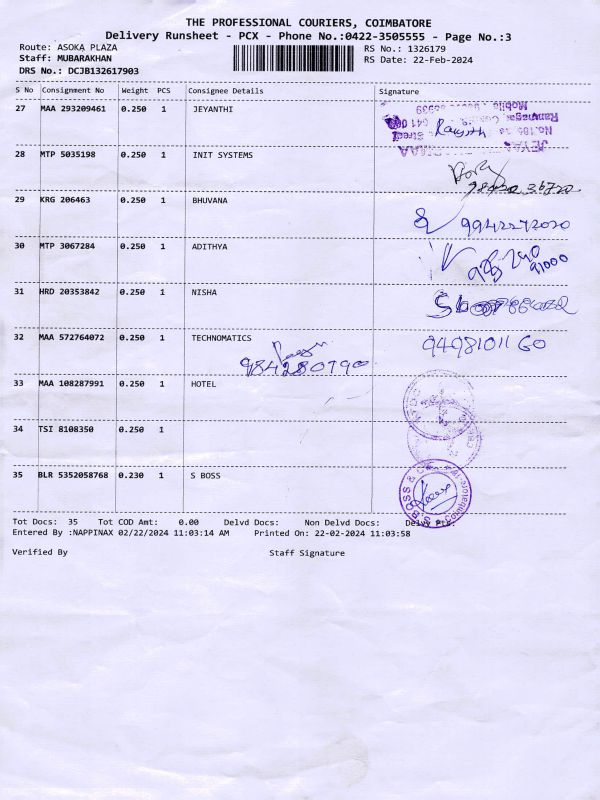 THE PROFESSIONAL COURIERS, COIMBATORE
Delivery Runsheet - PCX - Phone No.:0422-3505555 - Page No.:3
Route: ASOKA PLAZA
RS No.: 1326179
Staff: MUBARAKHAN
RS Date: 22-Feb-2024
DRS No.: DCJB132617903
S No Consignment No Weight PCS Consignee Details Signature
27 MAA 293209461 0.250 1 JEYANTHI
28 MTP 5035198 0.250 1 INIT SYSTEMS
29 KRG 206463 0.250 1 BHUVANA
9942272020
30 MTP 3067284 0.250 1 ADITHYA
91000
31 HRD 20353842 0.250 1 NISHA
32 MAA 572764072 0.250 1 TECHNOMATICS
9498101160
9842280790
33 MAA 108287991 0.250 1 HOTEL
34 TSI 8108350 0.250 1
35 BLR 5352058768 0.230 1 S BOSS
S. BOSS & CO
Coimbatore
Tot Docs: 35 Tot COD Amt: 0.00 Delvd Docs: Non Delvd Docs: Delvd Ptc:
Entered By :NAPPINAX 02/22/2024 11:03:14 AM Printed On: 22-02-2024 11:03:58
Verified By Staff Signature